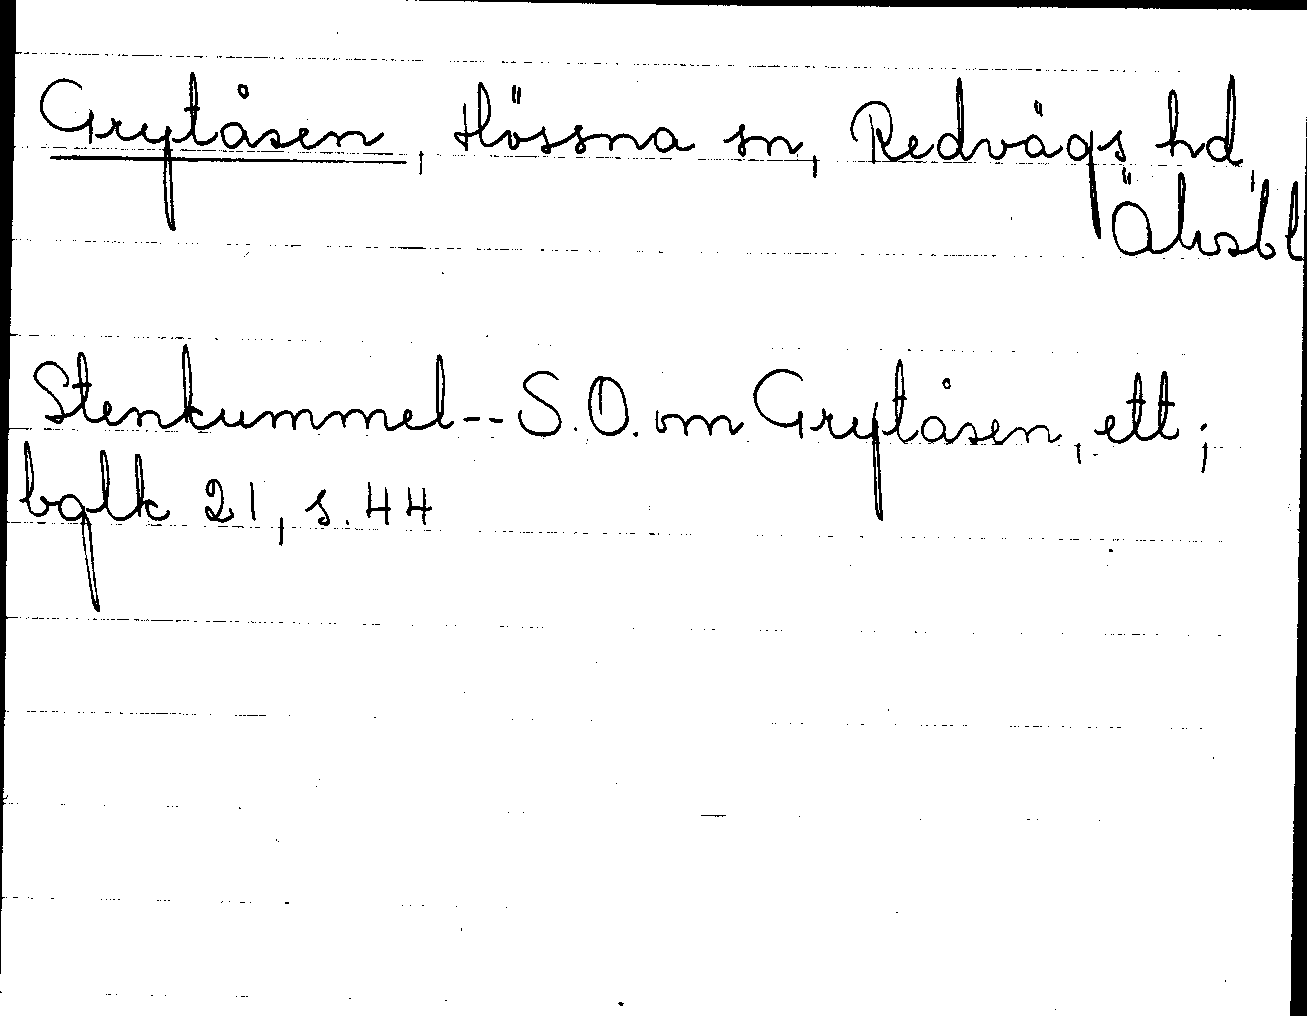 Grytåsen, Hössna sn, Redvägs hd,
Älvsbl
Stenkummel -- S.O. om Grytåsen, ett;
bglk 21, s. 44